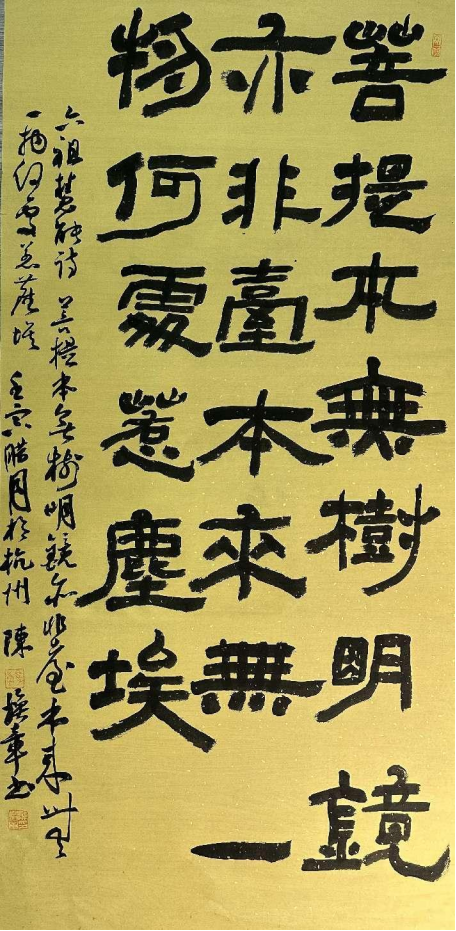 菩提本無樹明鏡
亦非臺本來無一
物何處惹塵埃
六祖慧能詩 菩提本無樹明鏡亦非臺本來無
一物何處惹塵埃 壬寅腊月於杭州 陳 章書